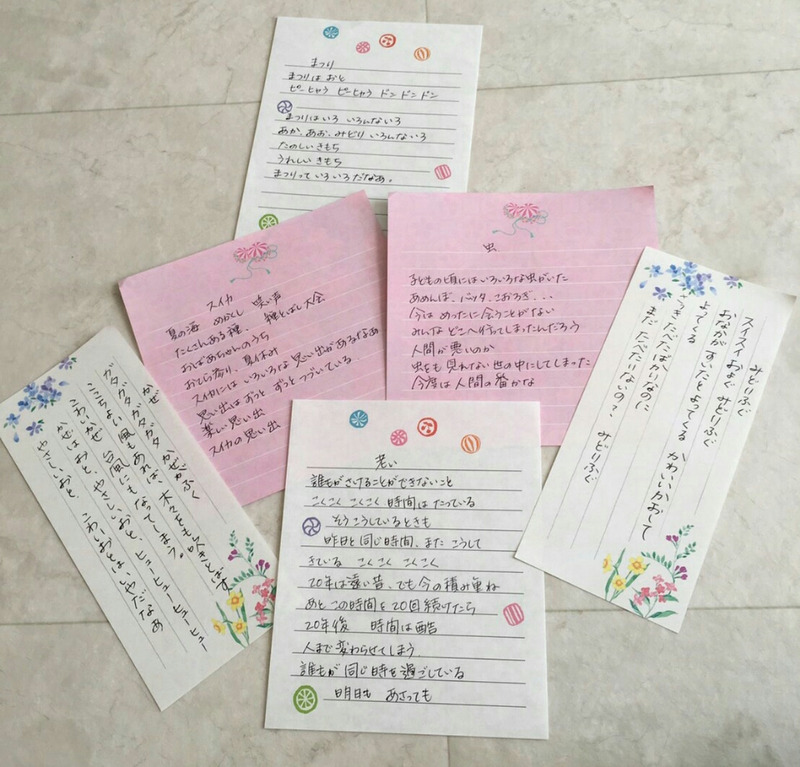 まつり
まつりは おと
ピーヒャラ ピーヒャラ ドンドンドン
まつりはいろ いろんないろ
あか、あお、みどり いろんないろ
たのしい きもち
うれしい きもち
まつりって いろいろ だなあ。
スイカ
夏の海 めかくし 笑い声
たくさんある種、 種とばし大会
おばあちゃんのうち
おじら滑り、夏休み
スイカには いろいろな 思い出があるなあ
思い出は ずっと ずっと つづいている
楽しい思い出
スイカの思い出
虫
子どもの頃には いろいろな 虫がいた
あめんぼ、バッタ、こおろぎ・・・
今は めったに会うことがない
みんな どこへ行ってしまったんだろう
人間が悪いのか
虫をも 見れない世の中にしてしまった
今度は 人間の番かな
みどりふぐ
スイスイ およぐ みどりふぐ
おなかが すいたと よってくる かわいいかおして
よってくる
さっき たべたばかりなのに
まだ たべたりないの? みどりふぐ
かぜ
ガタガタガタガタ かぜがふく
ここちよい風もあれば、木々をも吹きとばす
こわいかぜ 台風にもなってしまう。
かぜはおと、やさしいおと、ヒューヒューヒューヒュー
やさしいおと、こわいおとはいやだなあ
老い
誰もがさけることができないこと
こくこく こくこく 時間は たっている
そうこうしているときも
昨日と同じ時間、また こうして
きている こくこく こくこく
20年は遠い昔、でも今の積み重ね
あと この時間を20回続けたら
20年後 時間は酷
人まで変わらせてしまう
誰もが 同じ時を過ごしている
明日も あさっても